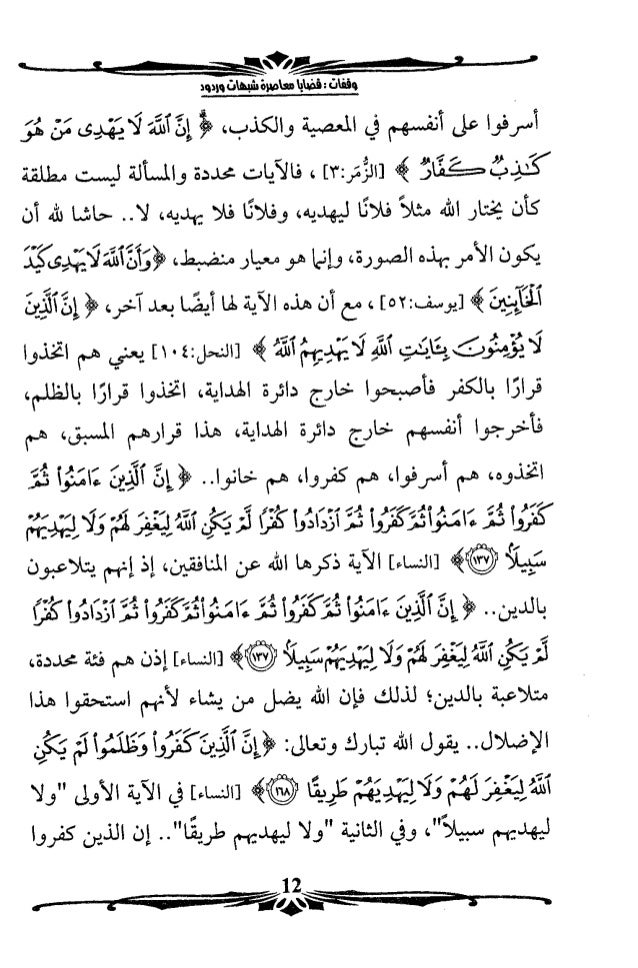 وقفات : قضايا معاصرة شبهات وردود
أسرفوا على أنفسهم في المعصية والكذب، ﴿ إِنَّ ٱللَّهَ لَا يَهْدِى مَنْ هُوَ
كَـٰذِبٌ كَفَّارٌ ﴾ [الزُّمَر:٣] ، فالآيات محددة والمسألة ليست مطلقة
كأن يختار الله مثلاً فلانًا ليهديه، وفلانًا فلا يهديه، لا.. حاشا لله أن
يكون الأمر بهذه الصورة، وإنما هو معيار منضبط، ﴿وَأَنَّ ٱللَّهَ لَا يَهْدِى كَيْدَ
ٱلْخَآئِنِينَ ﴾ [يوسف:٥٢] ، مع أن هذه الآية لها أيضًا بعد آخر، ﴿ إِنَّ ٱلَّذِينَ
لَا يُؤْمِنُونَ بِـَٔايَـٰتِ ٱللَّهِ لَا يَهْدِيهِمُ ٱللَّهُ ﴾ [النحل:١٠٤] يعني هم اتخذوا
قرارًا بالكفر فأصبحوا خارج دائرة الهداية، اتخذوا قرارًا بالظلم،
فأخرجوا أنفسهم خارج دائرة الهداية، هذا قرارهم المسبق، هم
اتخذوه، هم أسرفوا، هم كفروا، هم خانوا.. ﴿ إِنَّ ٱلَّذِينَ ءَامَنُوا۟ ثُمَّ
كَفَرُوا۟ ثُمَّ ءَامَنُوا۟ ثُمَّ كَفَرُوا۟ ثُمَّ ٱزْدَادُوا۟ كُفْرًا لَّمْ يَكُنِ ٱللَّهُ لِيَغْفِرَ لَهُمْ وَلَا لِيَهْدِيَهُمْ
سَبِيلًۢا ١٣٧ ﴾ [النساء] الآية ذكرها الله عن المنافقين، إذ إنهم يتلاعبون
بالدين.. ﴿ إِنَّ ٱلَّذِينَ ءَامَنُوا۟ ثُمَّ كَفَرُوا۟ ثُمَّ ءَامَنُوا۟ ثُمَّ كَفَرُوا۟ ثُمَّ ٱزْدَادُوا۟ كُفْرًا
لَّمْ يَكُنِ ٱللَّهُ لِيَغْفِرَ لَهُمْ وَلَا لِيَهْدِيَهُمْ سَبِيلًۢا ١٣٧ ﴾ [النساء] إذن هم فئة محددة،
متلاعبة بالدين؛ لذلك فإن الله يضل من يشاء لأنهم استحقوا هذا
الإضلال.. يقول الله تبارك وتعالى: ﴿إِنَّ ٱلَّذِينَ كَفَرُوا۟ وَظَلَمُوا۟ لَمْ يَكُنِ
ٱللَّهُ لِيَغْفِرَ لَهُمْ وَلَا لِيَهْدِيَهُمْ طَرِيقًا ١٦٨ ﴾ [النساء] في الآية الأولى "ولا
ليهديهم سبيلاً"، وفي الثانية "ولا ليهديهم طريقًا".. إن الذين كفروا
12